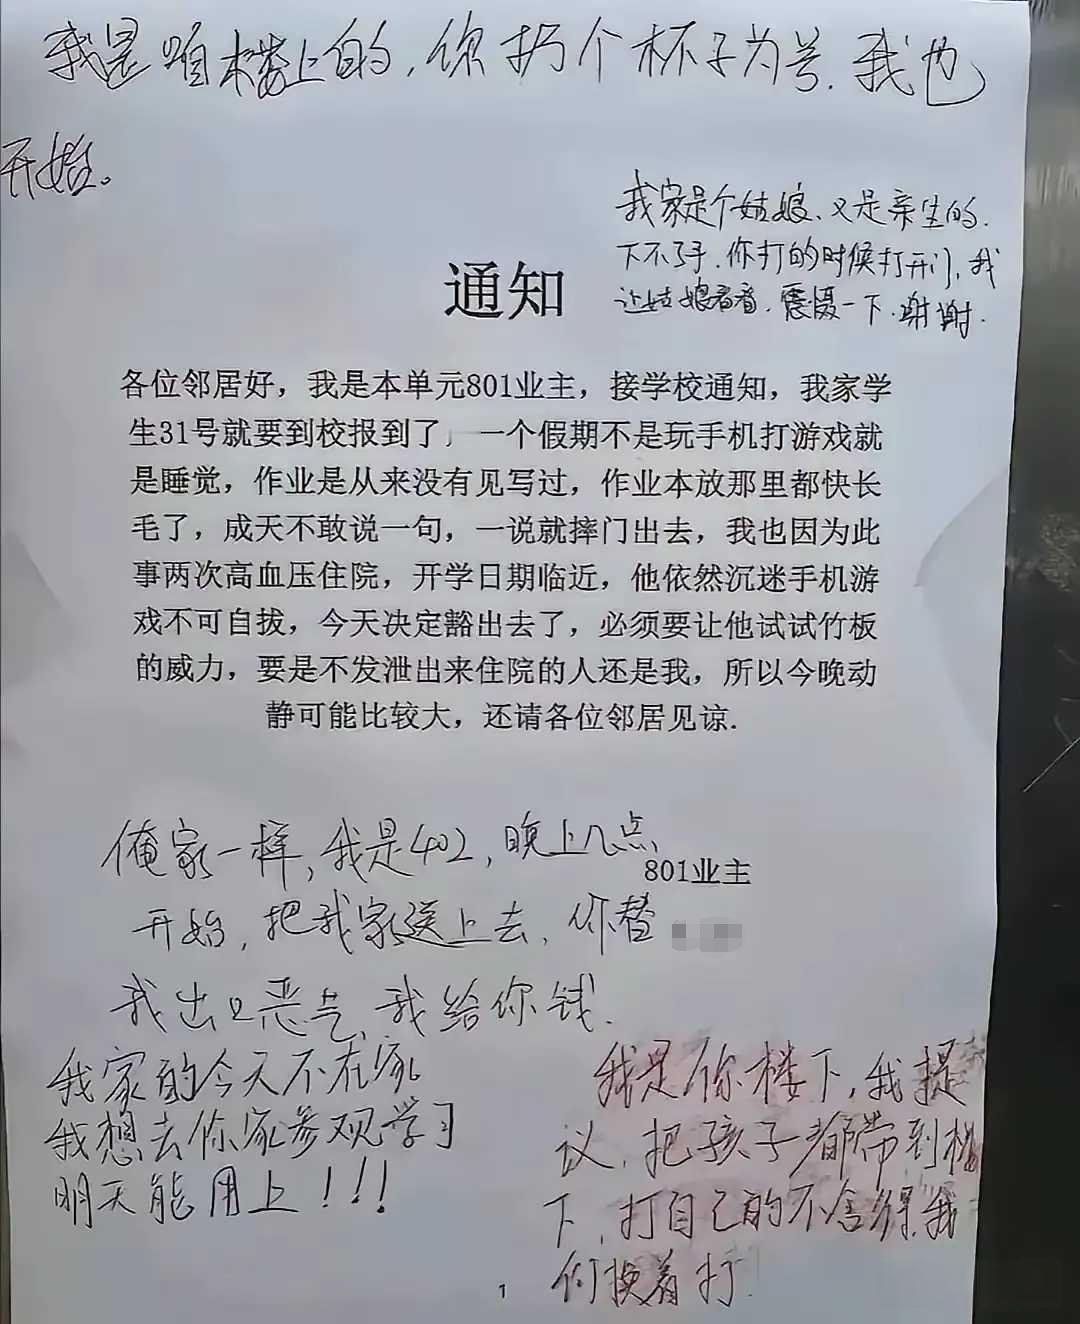 我是咱楼上的,你扔个杯子为号.我也
开始。
我家是个姑娘、又是亲生的.
下不了手.你打的时候打开门,我
让姑娘看看.震慑一下.谢谢.
通知
各位邻居好，我是本单元801业主，接学校通知，我家学
生31号就要到校报到了，一个假期不是玩手机打游戏就
是睡觉，作业是从来没有见写过，作业本放那里都快长
毛了，成天不敢说一句，一说就摔门出去，我也因为此
事两次高血压住院，开学日期临近，他依然沉迷手机游
戏不可自拔，今天决定豁出去了，必须要让他试试竹板
的威力，要是不发泄出来住院的人还是我，所以今晚动
静可能比较大，还请各位邻居见谅.
801业主
俺家一样,我是402,晚上几点
开始,把我家送上去,你替
我出口恶气,我给你钱.
我家的今天不在家
我想去你家参观学习
明天能用上!!!
我是你楼下,我提
议,把孩子都带到楼
下,打自己的不舍得.我
们换着打.
1